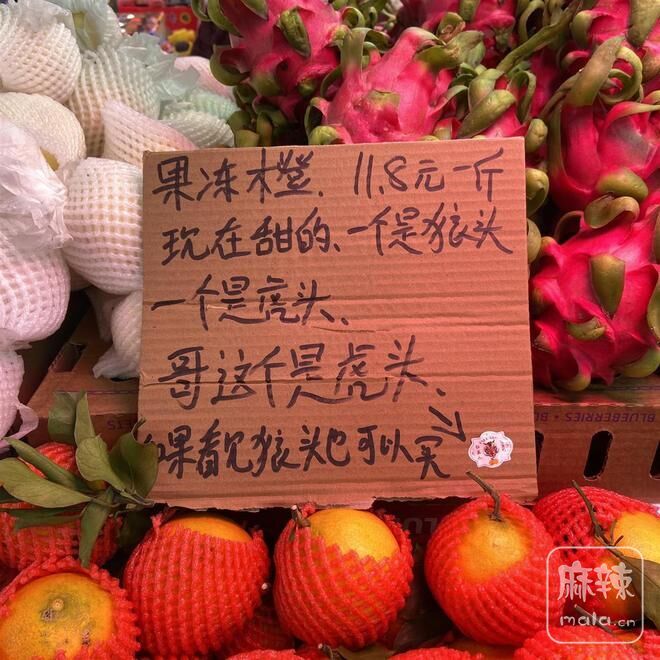 果冻橙、11.8元一斤
现在甜的、一个是狼头
一个是虎头、
哥这个是虎头、
如果看见狼头也可以买
BLUEBERRIES
麻辣
mala.cn